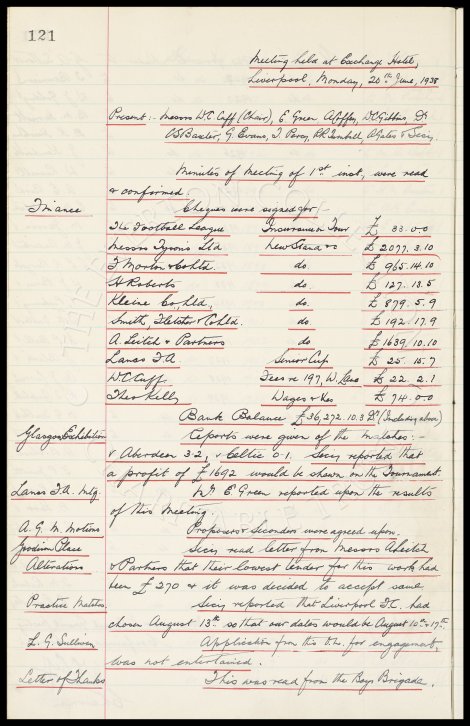 121
Meeting held at Exchange Hotel,
Liverpool, Monday, 20th June, 1938
Present:- Messrs W.C. Cuff (Chair), E Green A Coffey, W.C. Gibbins, Dr
C.S. Baxter, G. Evans, T. Percy, R.R. Turnbull A Gates & Secy.
Minutes of Meeting of 1st inst, were read
& confirmed.
Finance
Cheques were signed for:-
The Football League Insurance on Tour £ 33.0.0
Messrs Tysons Ltd New Stand &c £ 2077.3.10
J Morton & Co Ltd. do £ 965.14.10
H Roberts do. £ 127.13.5
Kleine Co., Ltd, do. £ 879.5.9
Smith, Fletcher & Co Ltd. do. £ 192.17.9
A. Leitch & Partners do £ 1639.10.10
Lancs F.A Senior Cup £ 25.15.7
W.C. Cuff. Fees re 197, W. Lane £ 22.2.1
Theo Kelly Wages & Xes £ 74.0.0
Bank Balance £36,272.10.3 Dr (Including above)
Glasgow Exhibition
Reports were given of the matches:-
v Aberdeen 3.2, v Celtic 0.1. Secy reported that
a profit of £1692 would be shown on the Tournament.
Lancs F.A. mtg.
Mr E. Green reported upon the results
of this Meeting.
A.G.M. Motions
Proposers & Seconders were agreed upon.
Goodison Place
Alterations
Secy read letter from Messrs A Leitch
& Partners that their lowest tender for this work had
been £270 & it was decided to accept same.
Practice Matches.
Secy reported that Liverpool F.C. had
chosen August 13th so that our dates would be August 10th & 17th.
L. G. Sullivan
Application from this for engagement,
was not entertained.
Letter of Thanks
This was read from the Boys Brigade.